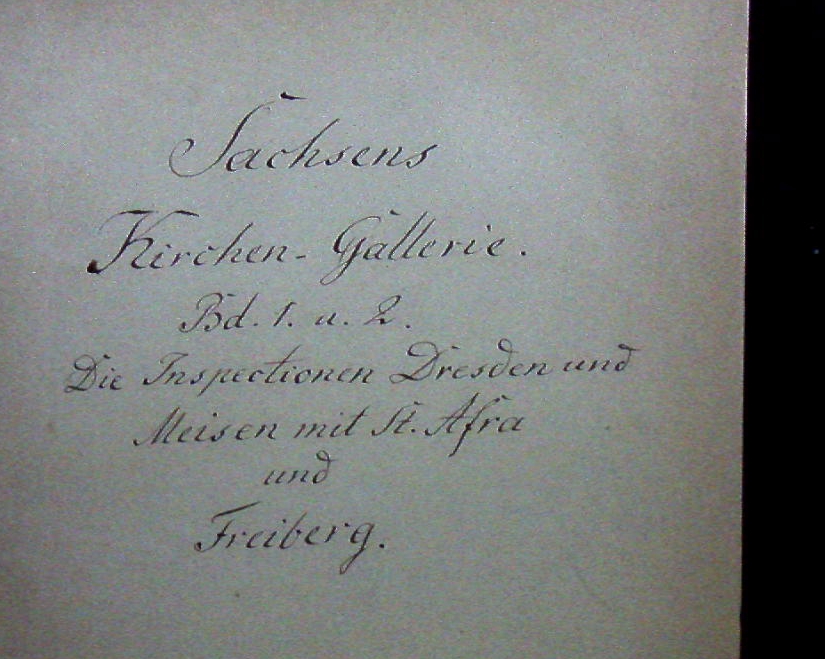 Sachsens
Kirchen-Gallerie.
Bd. 1. u. 2.
Die Inspectionen Dresden und
Meisen mit St. Afra
und
Freiberg.